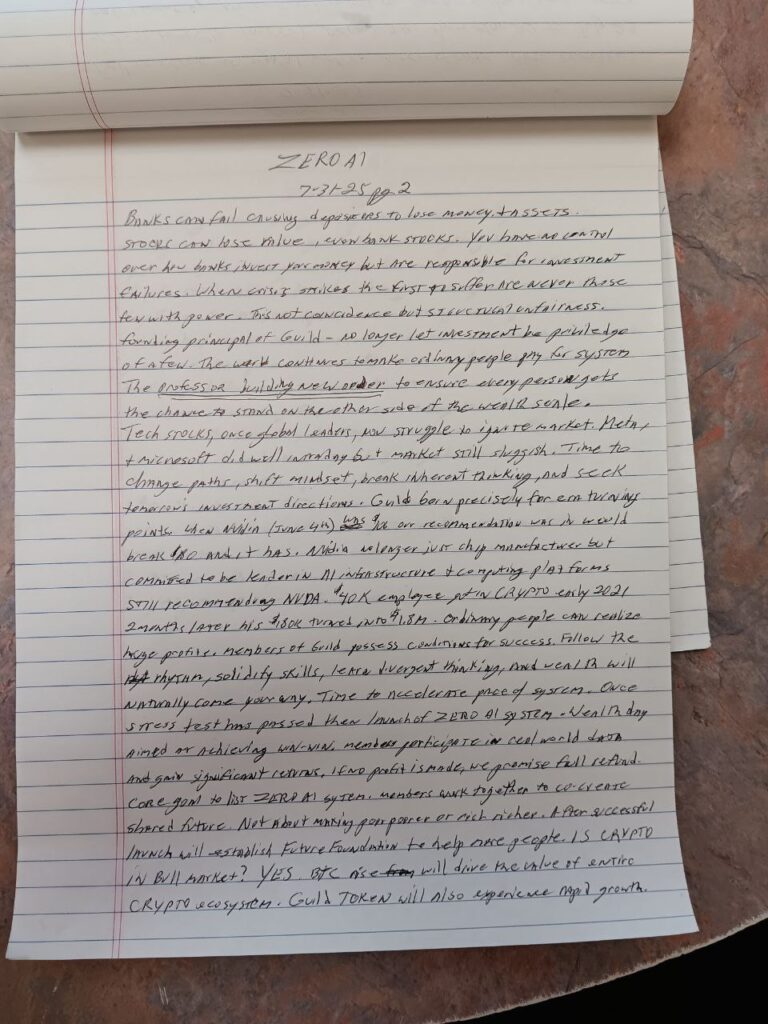 ZERO AI
7-31-25 pg 2
BANKS CAN FAIL CAUSING depositors to lose money & ASSETS.
STOCKS CAN LOSE VALUE, even bank stocks. You have no control
over how banks invest your money but are responsible for investment
failures. When crisis strikes the first to suffer are never those
few with power. It's not coincidence but structural unfairness.
founding principal of Guild - no longer let investment be priviledge
of a few. The world continues to make ordinary people pay for system
The professor building new order to ensure every person gets
the chance to stand on the other side of the wealth scale.
Tech stocks, once global leaders, now struggle to ignite market. Meta,
& microsoft did well intraday but market still sluggish. Time to
change paths, shift mindset, break inherent thinking, and seek
tomorrows investment directions. Guild born precisely for era turning
points. When Nvidia (June 4th) was $ our recommendation was it would
break and it has. Nvidia no longer just chip manufacturer but
committed to be leader in AI infrastructure & computing platforms
Still recommending NVDA. $40K employee put in CRYPTO early 2021
2 months later his $180K turned into $1.8M. Ordinary people can realize
huge profits. members of Guild possess conditions for success. Follow the
rhythm, solidify skills, learn divergent thinking, and wealth will
naturally come your way. Time to accelerate pace of system. Once
stress test has passed then launch of ZERO AI system. Wealth day
aimed at achieving win-win. members participate in real world data
and gain significant returns. If no profit is made, we promise full refund.
Core goal to list ZERO AI sytem. members work together to co-create
shared future. Not about making poor poorer or rich richer. After successful
launch will establish Future Foundation to help more people. IS CRYPTO
IN Bull market? YES. BTC rise will drive the value of entire
CRYPTO ecosystem. Guild TOKEN will also experience rapid growth.